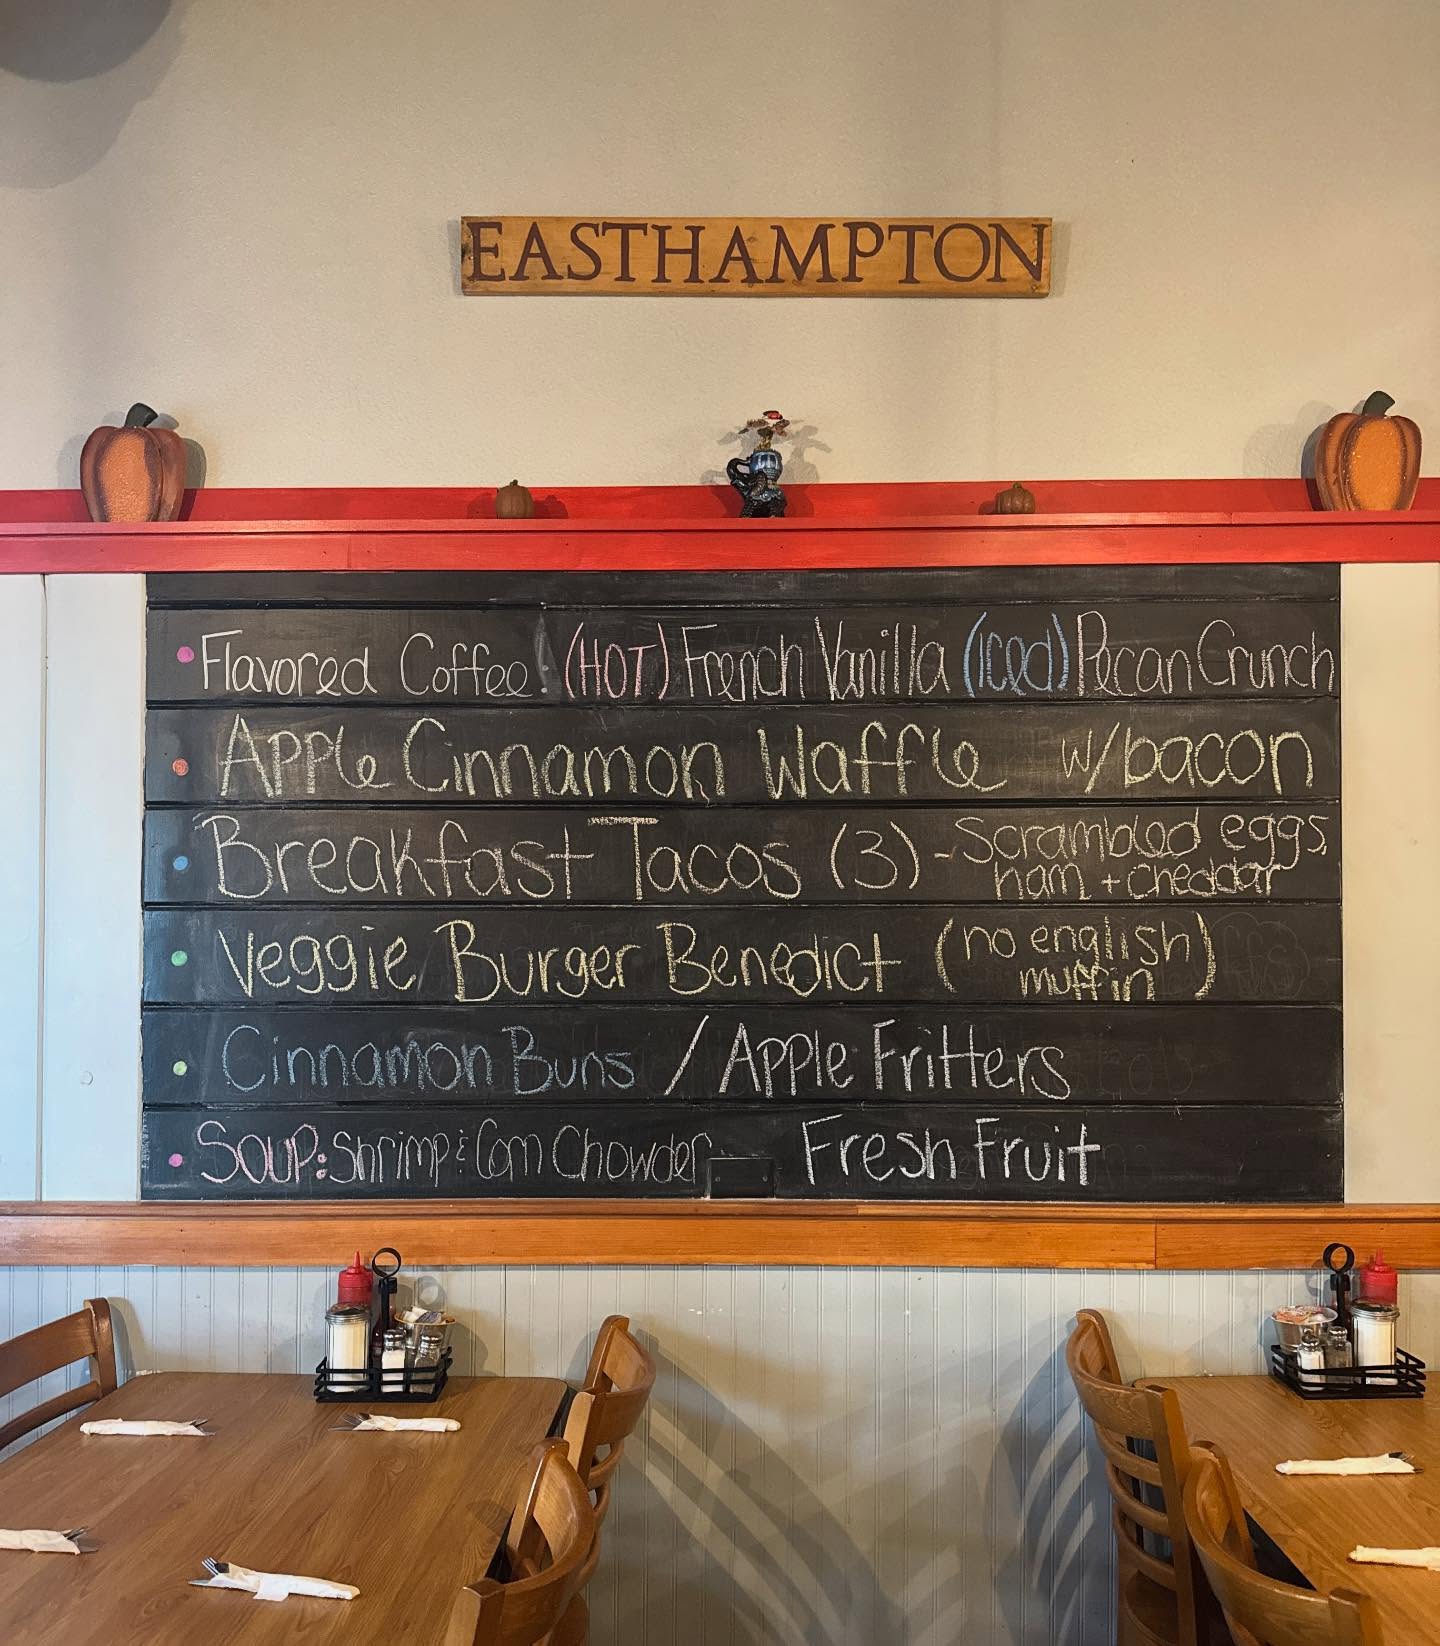 EASTHAMPTON
Flavored Coffee: (HOT) French Vanilla (Iced) Pecan Crunch
Apple Cinnamon Waffle w/bacon
Breakfast Tacos (3) - Scrambled eggs,
ham + cheddar
Veggie Burger Benedict (no english
muffin)
Cinnamon Buns / Apple Fritters
Soup: Shrimp & Corn Chowder Fresh Fruit